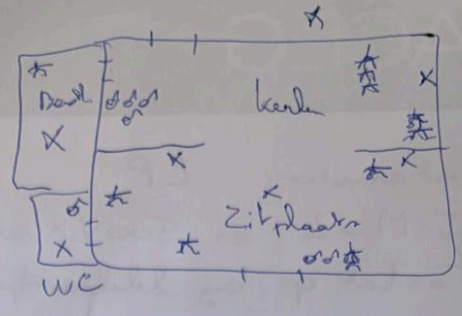 keuken
Zitplaats
WC